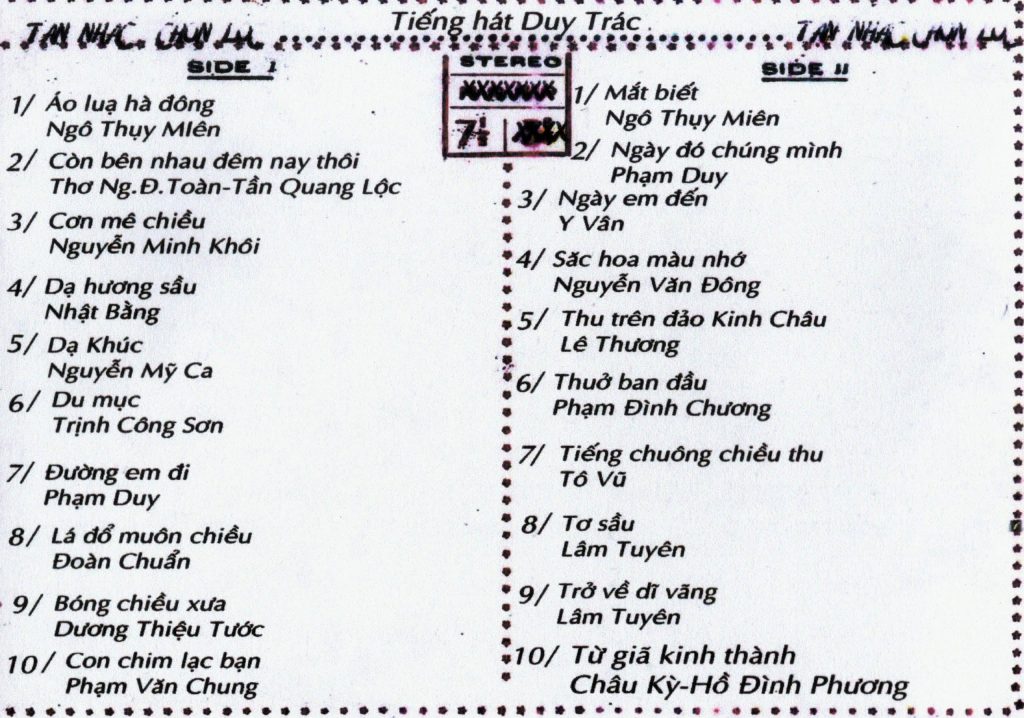 Tiếng hát Duy Trác
TAN NHAC CHON LOC
TAN NHAC CHON LOC
SIDE I
1/ Áo lụa hà đông
Ngô Thụy MIên
2/ Còn bên nhau đêm nay thôi
Thơ Ng.Đ.Toàn-Tần Quang Lộc
3/ Cơn mê chiều
Nguyễn Minh Khôi
4/ Dạ hương sầu
Nhật Bằng
5/ Dạ Khúc
Nguyễn Mỹ Ca
6/ Du mục
Trịnh Công Sơn
7/ Đường em đi
Phạm Duy
8/ Lá đổ muôn chiều
Đoàn Chuẩn
9/ Bóng chiều xưa
Dương Thiệu Tước
10/ Con chim lạc bạn
Phạm Văn Chung
STEREO
7 1/2
SIDE II
1/ Mắt biết
Ngô Thụy Miên
2/ Ngày đó chúng mình
Phạm Duy
3/ Ngày em đến
Y Vân
4/ Săc hoa màu nhớ
Nguyễn Văn Đông
5/ Thu trên đảo Kinh Châu
Lê Thương
6/ Thuở ban đầu
Phạm Đình Chương
7/ Tiếng chuông chiều thu
Tô Vũ
8/ Tơ sầu
Lâm Tuyên
9/ Trở về dĩ vãng
Lâm Tuyên
10/ Từ giã kinh thành
Châu Kỳ-Hồ Đình Phương